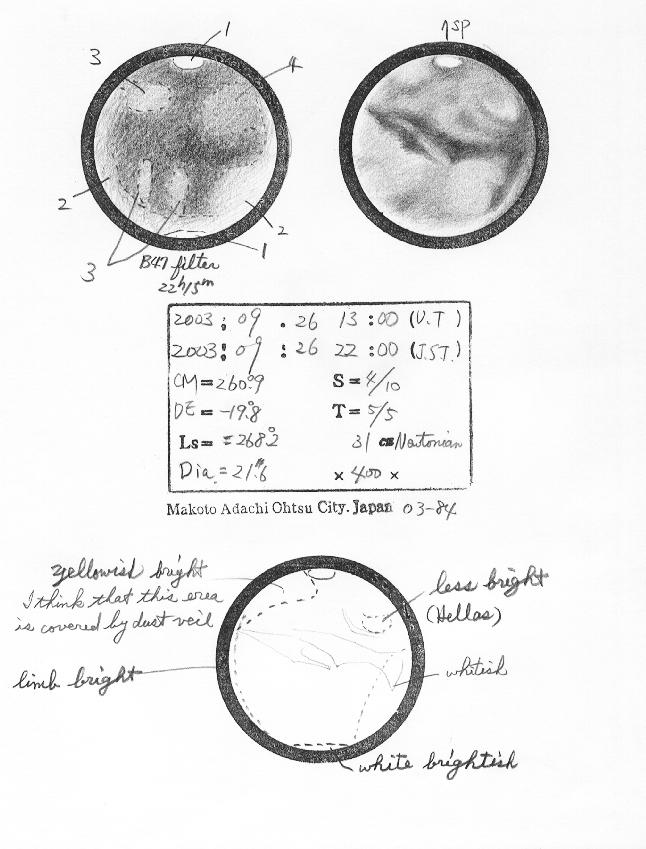 1
3
4
2
2
3
1
B47 filter
22h15m
↑SP
2003 ; 09 . 26 13 : 00 (U.T )
2003 : 09 : 26 22 : 00 (J.S.T.)
CM = 260.°9 S = 4/10
DE = -19.°8 T = 5/5
Ls = = 268.°2 31 cm Newtonian
Dia. = 21."6 × 400 ×
Makoto Adachi Ohtsu City. Japan 03-84
yellowish bright
I think that this erea
is covered by dust veil
less bright
(Hellas)
limb bright
whitish
white brightish